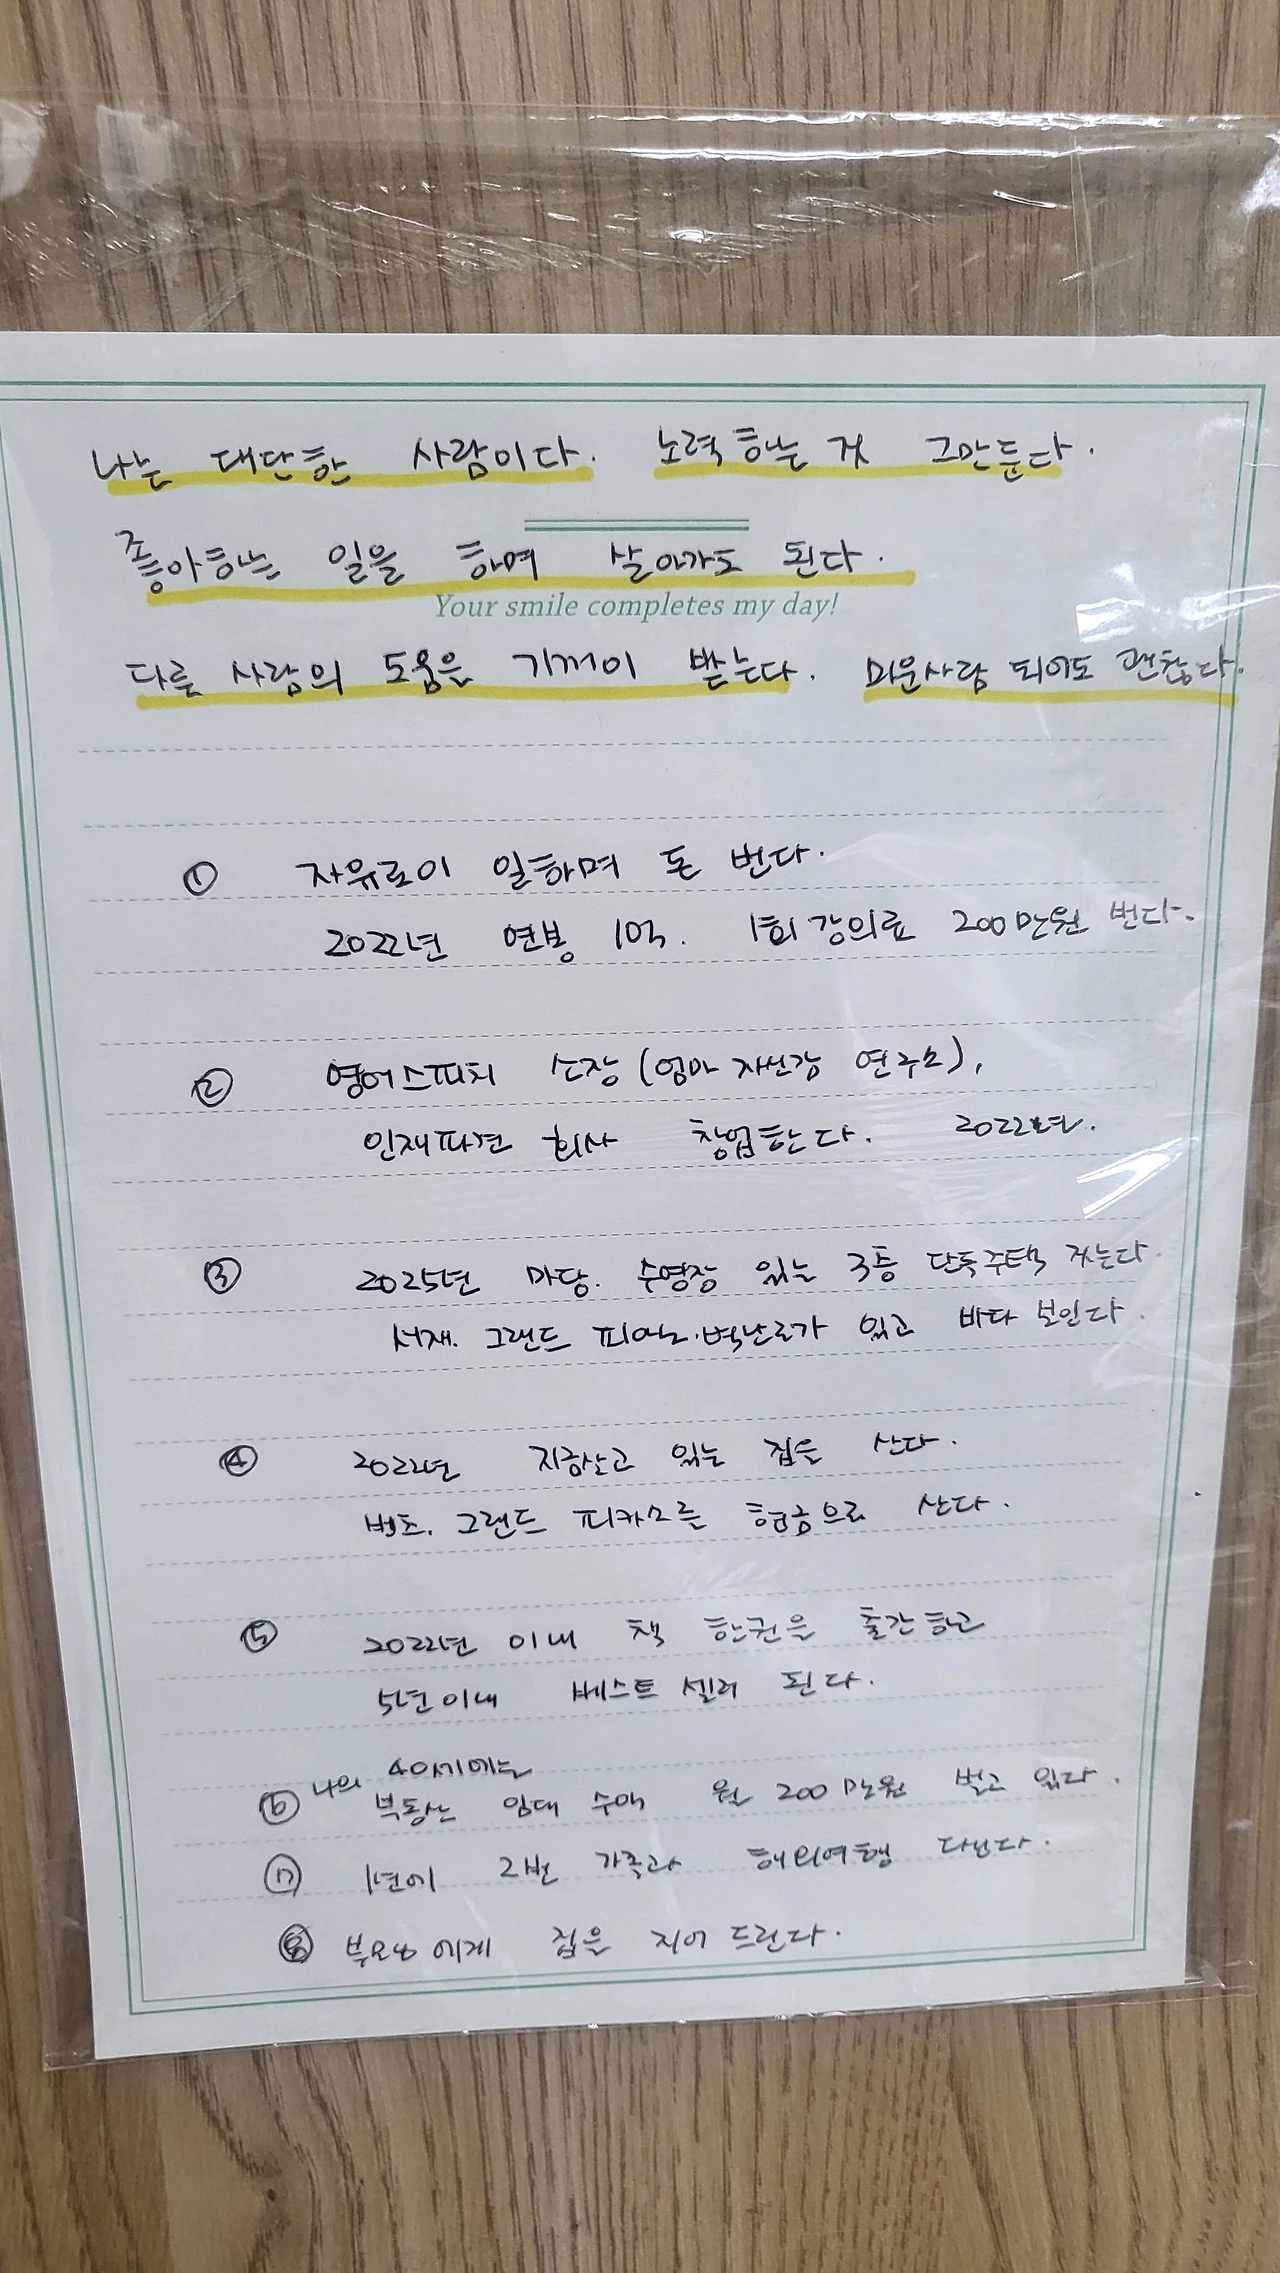 나는 대단한 사람이다. 노력하는 것 그만둔다.
좋아하는 일을 하며 살아가도 된다.
Your smile completes my day!
다른 사람의 도움을 기꺼이 받는다. 미운사람 되어도 괜찮다.
① 자유로이 일하며 돈 번다.
2022년 연봉 1억. 1회 강의료 200만원 번다.
② 영어스피치 소장 (엄마 자신감 연구소),
인재파견 회사 창업한다. 2022년.
③ 2025년 마당. 수영장 있는 3층 단독주택 짓는다.
서재. 그랜드 피아노. 벽난로가 있고 바다 보인다.
④ 2022년 차고 있는 집을 산다.
벤츠. 그랜드 피카소를 현금으로 산다.
⑤ 2022년 이내 책 한권을 출간하고
5년이내 베스트 셀러 된다.
⑥ 나의 40세에는
부동산 임대 수익 월 200만원 벌고 있다.
⑦ 1년에 2번 가족과 해외여행 다닌다.
⑧ 부모님에게 집을 지어 드린다.